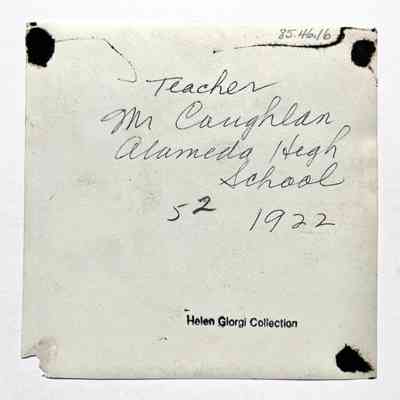 85.46.16
Teacher
Mr Coughlan
Alameda High
School
52 1922
Helen Giorgi Collection